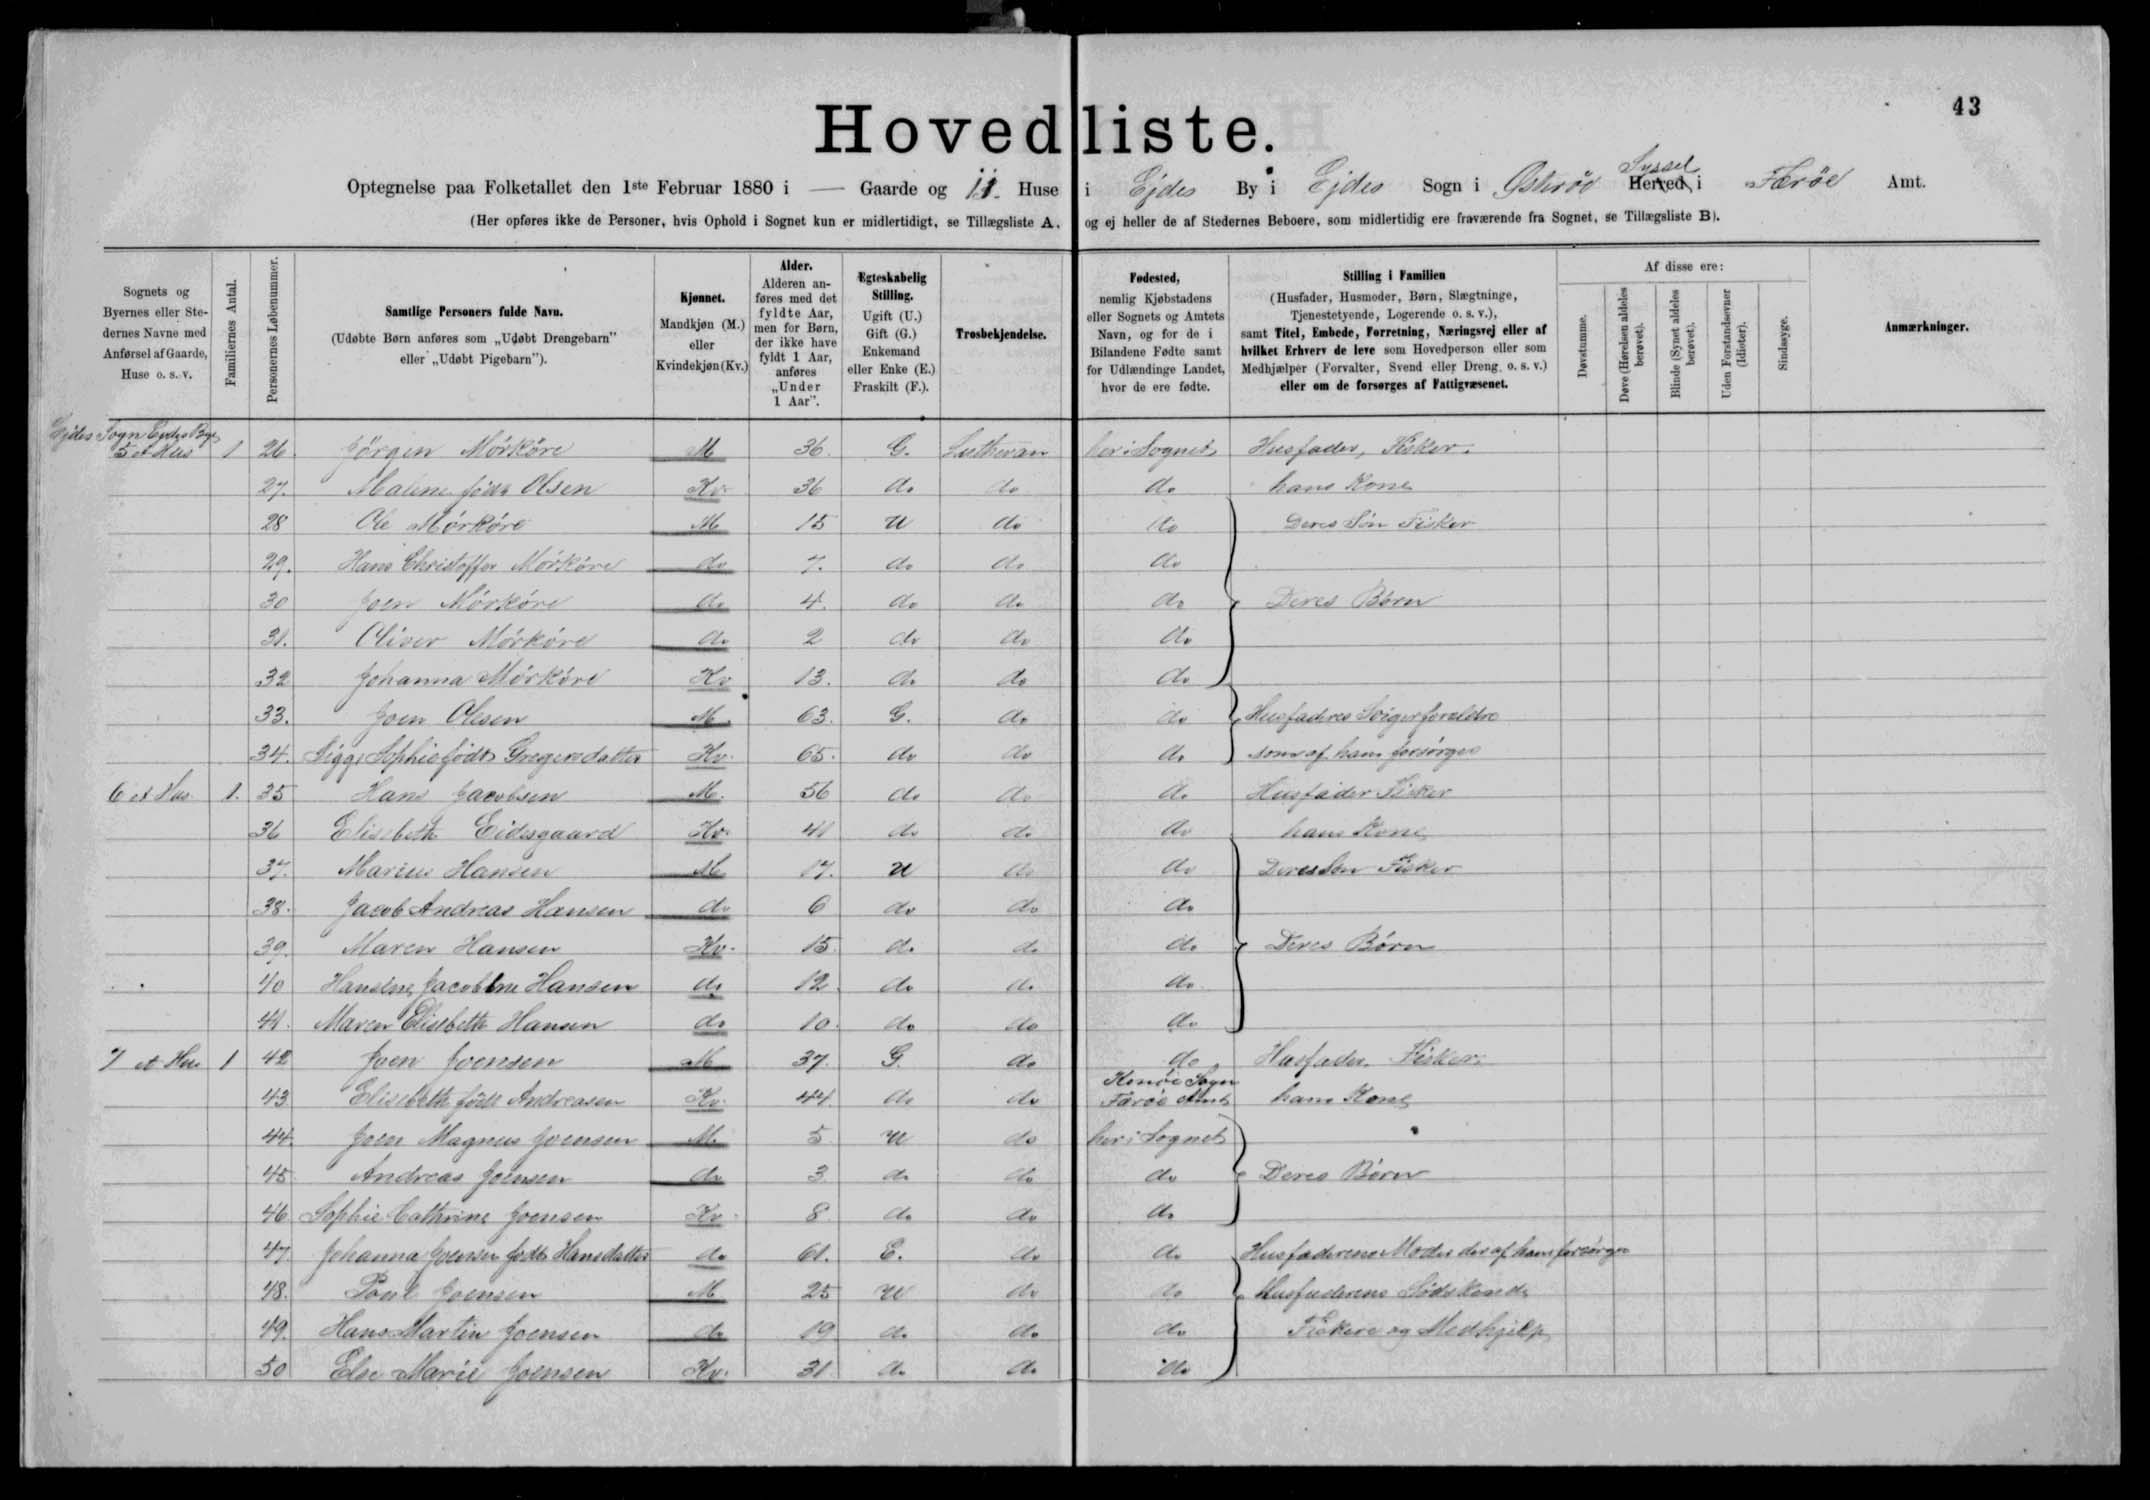 43
Hovedliste.
Optegnelse paa Folketallet den 1ste Februar 1880 i — Gaarde og 11. Huse i Ejdes By i Ejdes Sogn i Østerøe Syssel Herred i Færöe Amt.
(Her opføres ikke de Personer, hvis Ophold i Sognet kun er midlertidigt, se Tillægsliste A. og ej heller de af Stedernes Beboere, som midlertidig ere fraværende fra Sognet, se Tillægsliste B).
Sognets og Byernes eller Stedernes Navne med Anførsel af Gaarde, Huse o. s. v.
Familiernes Antal.
Personernes Løbenummer.
Samtlige Personers fulde Navn. (Udøbte Børn anføres som „Udøbt Drengebarn" eller „Udøbt Pigebarn").
Kjønnet. Mandkjøn (M.) eller Kvindekjøn (Kv.)
Alder. Alderen anføres med det fyldte Aar, men for Børn, der ikke have fyldt 1 Aar, anføres „Under 1 Aar".
Ægteskabelig Stilling. Ugift (U.) Gift (G.) Enkemand eller Enke (E.) Fraskilt (F.).
Trosbekjendelse.
Fødested, nemlig Kjøbstadens eller Sognets og Amtets Navn, og for de i Bilandene Fødte samt for Udlændinge Landet, hvor de ere fødte.
Stilling i Familien (Husfader, Husmoder, Børn, Slægtninge, Tjenestetyende, Logerende o. s. v.), samt Titel, Embede, Forretning, Næringsvej eller af hvilket Erhverv de leve som Hovedperson eller som Medhjælper (Forvalter, Svend eller Dreng o. s. v.) eller om de forsørges af Fattigvæsenet.
Af disse ere:
Døvstumme.
Døve (Hørelsen aldeles berøvet).
Blinde (Synet aldeles berøvet).
Uden Forstandsevner (Idioter).
Sindssyge.
Anmærkninger.
Ejdes Sogn Ejdes Bye
5 et Hus 1 26. Jörgen Mörköre M 36. G. Lutheran her i Sognet Husfader, Fisker.
27. Malene födt Olsen Kv. 36 do do do hans Kone
28 Ole Mörköre M 15 U do do Deres Sön Fisker
29. Hans Christoffer Mörköre do 7. do do do
30 Joen Mörköre do 4. do do do Deres Börn
31. Oliver Mörköre do 2 do do do
32 Johanna Mörköre Kv 13. do do do
33. Joen Olesen M. 63. G. do do Husfaderes Svigerforældre
34. Sigge Sophie födt Gregersdatter Kv. 65. do do do som af ham forsörges
6 et Hus. 1. 35 Hans Jacobsen M. 56 do do do Husfader Fisker
36 Elisebeth Eidesgaard Kv. 41 do do do hans Kone
37. Marius Hansen M. 17. U do do Deres Sön Fisker
38. Jacob Andreas Hansen do 6 do do do
39. Maren Hansen Kv. 15 do do do Deres Börn
40 Hansine Jacobine Hansen do 12 do do do
41. Maren Elisebeth Hansen do 10. do do do
7 et Hus 1 42 Joen Joensen M 37. G. do do Husfader Fisker.
43 Elisebeth födt Andreasen Kv. 44. do do Kunöe Sogn Færöe Amt hans Kone
44. Joen Magnus Joensen M. 5 U do her i Sognet
45 Andreas Joensen do 3 do do do Deres Börn
46 Sophie Cathrine Joensen Kv. 8 do do do
47. Johanna Joensen födt Hansdatter do 61. E. do do Husfaderens Moder der af ham forsörges
48. Poul Joensen M 25 U do do Husfaderens Södskende
49. Hans Martin Joensen do 19 do do do Fiskere og Medhjelp
50 Else Marie Joensen Kv. 31 do do do